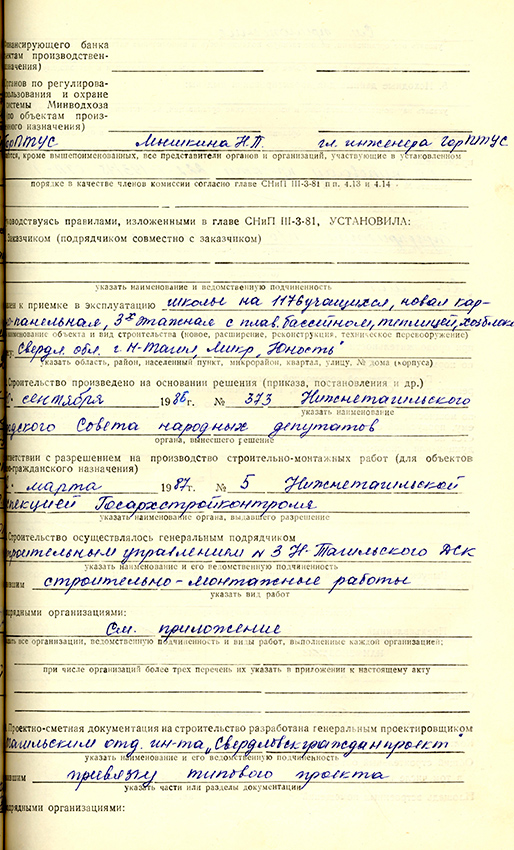 инансирующего банка
ектам производствен-
значения)
рганов по регулирова-
ользования и охране
стемы Минводхоза
по объектам произ-
нного назначения)
горПТУС Мышкина Н.П. гл. инженера ГорПТУС
ются, кроме вышепоименованных, все представители органов и организаций, участвующие в установленном
порядке в качестве членов комиссии согласно главе СНиП III-3-81 п п. 4.13 и 4.14
оводствуясь правилами, изложенными в главе СНиП III-3-81, УСТАНОВИЛА:
Заказчиком (подрядчиком совместно с заказчиком)
указать наименование и ведомственную подчиненность
лен к приемке в эксплуатацию школы на 1176 учащихся, новая кар-
о-панельная, 3х этажная с плав. бассейном, теплицей, хозблоко
именование объекта и вид строительства (новое, расширение, реконструкция, техническое перевооружение)
Свердл. обл. г. Н-Тагил, Микр. „Юность"
указать область, район, населенный пункт, микрорайон, квартал, улицу, № дома (корпуса)
Строительство произведено на основании решения (приказа, постановления и др.)
сентября 1986 г. № 373 Нижнетагильского
указать наименование
одского Совета народных депутатов
органа, вынесшего решение
ответствии с разрешением на производство строительно-монтажных работ (для объектов
-гражданского назначения)
марта 1987 г. № 5 Нижнетагильской
спекцией Госархстройконтроля
указать наименование органа, выдавшего разрешение
Строительство осуществлялось генеральным подрядчиком
троительным управлением № 3 Н-Тагильского ДСК
указать наименование и его ведомственную подчиненность
ившим строительно-монтажные работы
указать вид работ
дрядными организациями:
См. приложение
ать все организации, ведомственную подчиненность и виды работ, выполненные каждой организацией;
при числе организаций более трех перечень их указать в приложении к настоящему акту
Проектно-сметная документация на строительство разработана генеральным проектировщиком
Тагильским отд. ин-та „Свердловскгражданпроект"
указать наименование и его ведомственную подчиненность
нившим привязку типового проекта
указать части или разделы документации
одрядными организациями: